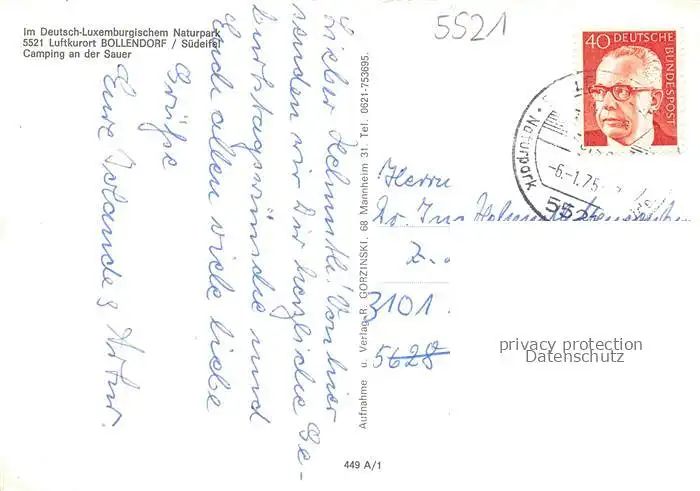 Im Deutsch-Luxemburgischem Naturpark
5521 Luftkurort BOLLENDORF / Südeifel
Camping an der Sauer
5521
40 DEUTSCHE BUNDESPOST
Naturpark
-6.-1.75
552
Lieber Helmuth! Von hier
senden wir Dir herzliche Ge-
burtstagswünsche und
Euch allen viele liebe
Grüße
Eure Jolande & Artur.
Aufnahme u. Verlag R. GORZINSKI, 68 Mannheim 31, Tel. 0621-753695.
Herrn
Z.
3101
5628
449 A/1
privacy protection
Datenschutz